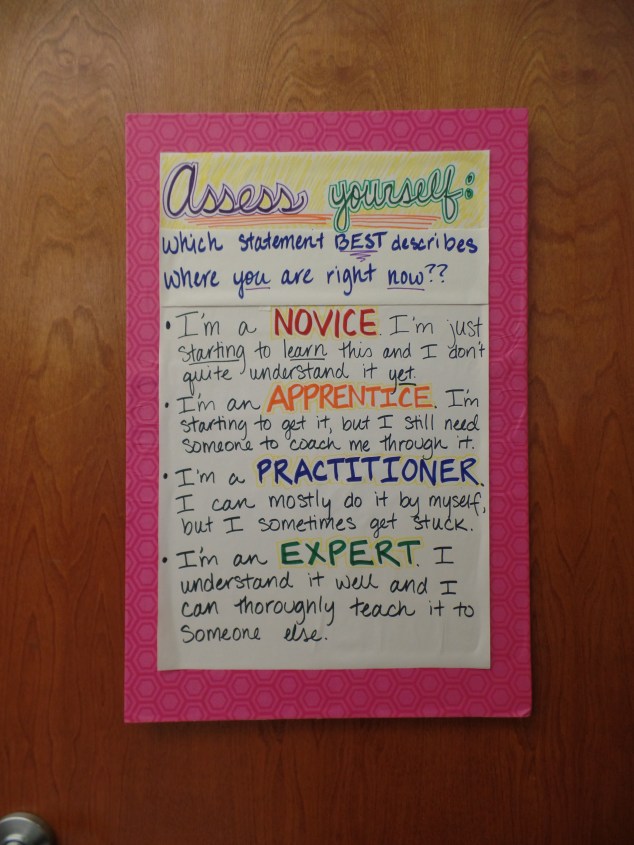 Assess yourself:
Which statement BEST describes
where you are right now??
• I'm a NOVICE. I'm just
starting to learn this and I don't
quite understand it yet.
• I'm an APPRENTICE. I'm
starting to get it, but I still need
someone to coach me through it.
• I'm a PRACTITIONER.
I can mostly do it by myself,
but I sometimes get stuck.
• I'm an EXPERT. I
understand it well and I
can thoroughly teach it to
someone else.